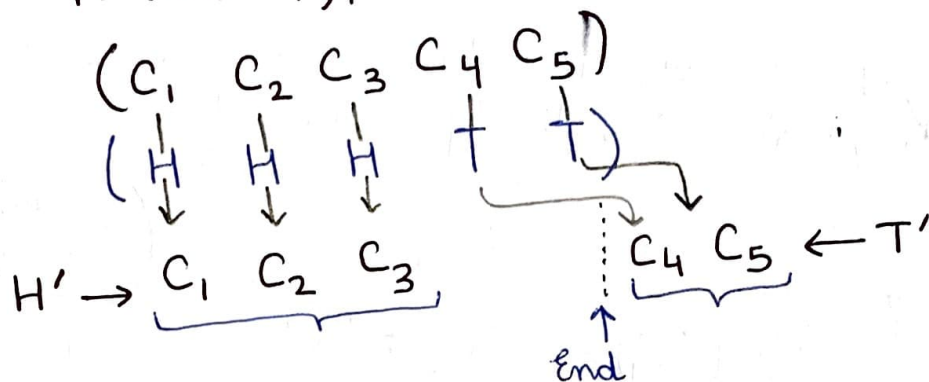 (C₁ C₂ C₃ C₄ C₅)
(H H H T T)
H' → C₁ C₂ C₃ C₄ C₅ ← T'
End